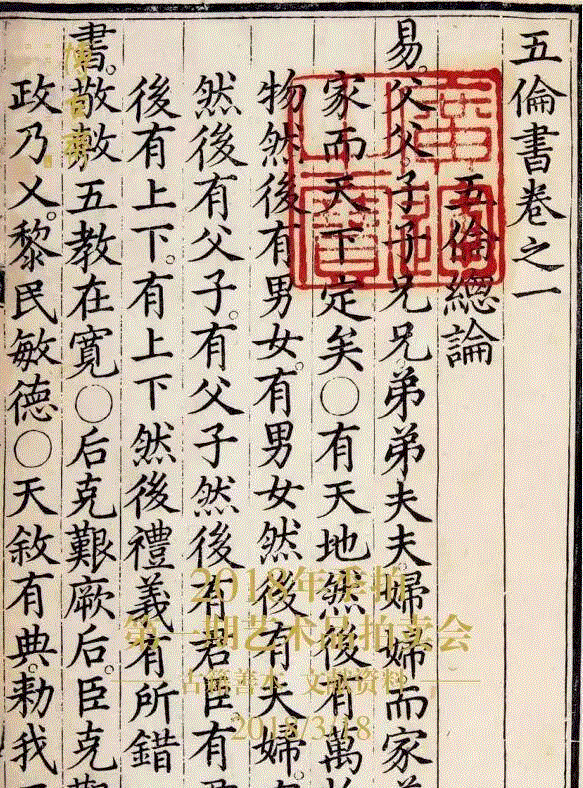 五倫書卷之一
五倫總論
易。父父。子子兄兄弟弟夫夫婦婦而家
家而天下定矣〇有天地然後有萬
物然後有男女。有男女然後有夫婦。
然後有父子。有父子然後有君臣有
後有上下。有上下然後禮義有所錯
書。敬敷五教在寬〇后克艱厥后。臣克
政乃乂。黎民敏德〇天敘有典。勑我
廣運之寶
博古斋
2018年季拍
第一期艺术品拍卖会
古籍善本 文献资料
2018/3/18